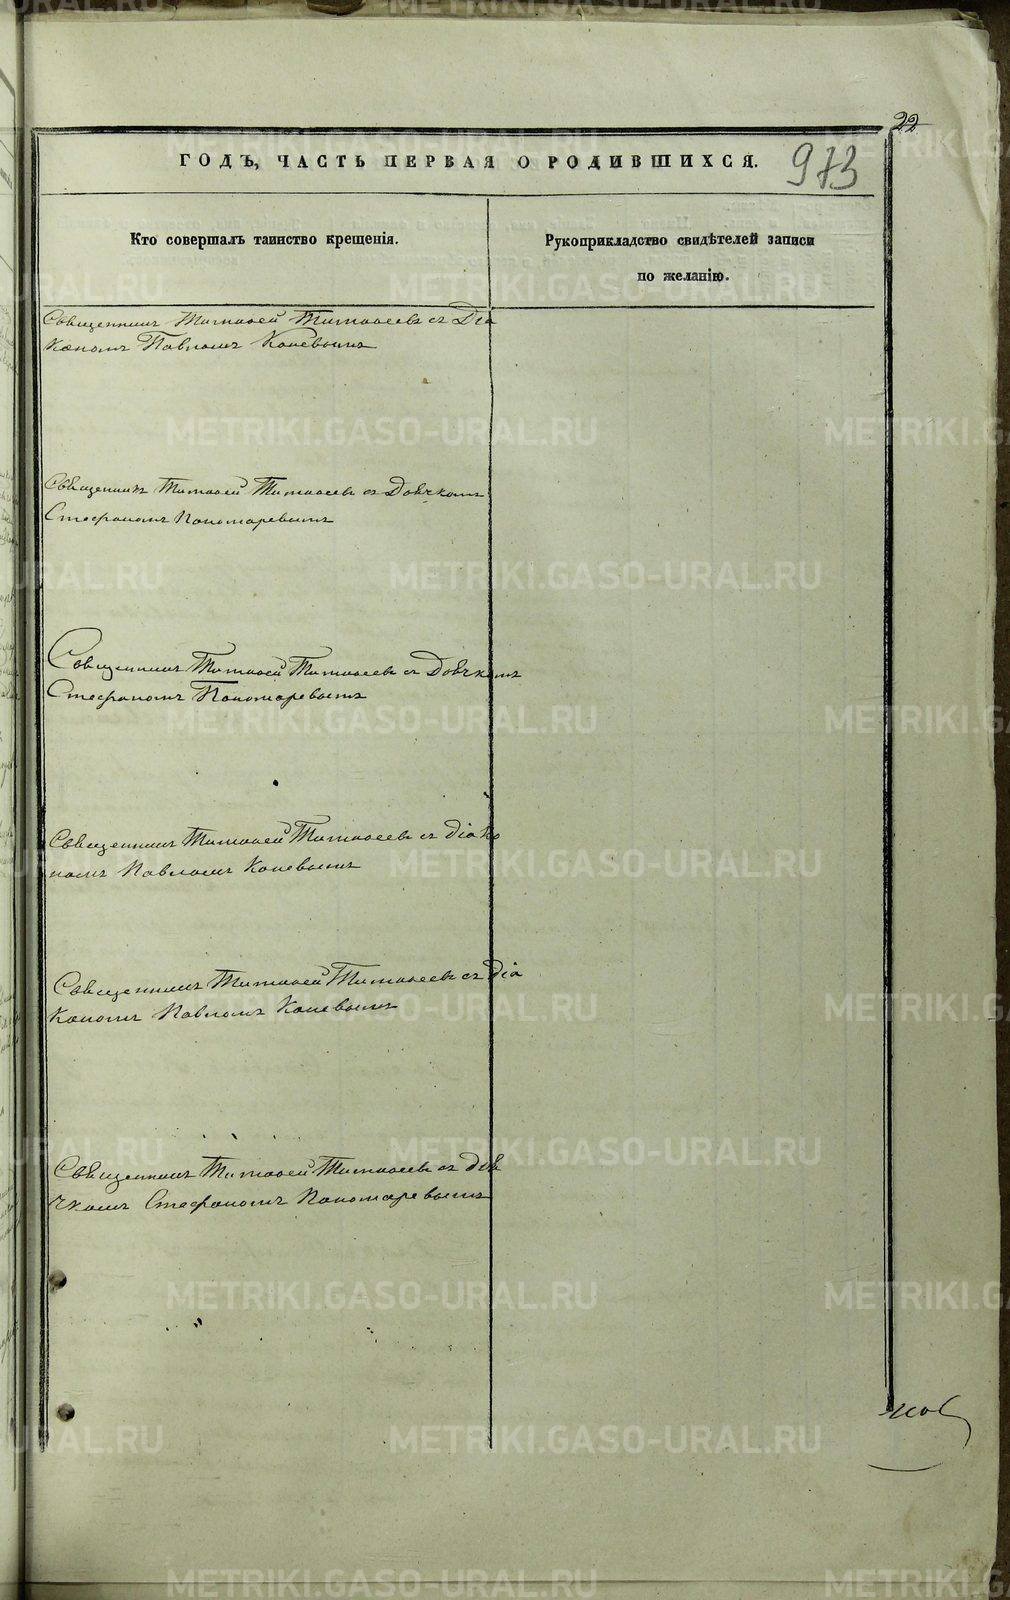 22
ГОДЪ, ЧАСТЬ ПЕРВАЯ О РОДИВШИХСЯ.
973
Кто совершалъ таинство крещенія.
Рукоприкладство свидѣтелей записи
по желанію.
Священникъ Тимофей Тимофеевъ съ Діа
кономъ Павломъ Коневымъ
Священникъ Тимофей Тимофеевъ съ Дьячкомъ
Стефаномъ Пономаревымъ
Священникъ Тимофей Тимофеевъ съ Дьячкомъ
Стефаномъ Пономаревымъ
Священникъ Тимофей Тимофеевъ съ діако
номъ Павломъ Коневымъ
Священникъ Тимофей Тимофеевъ съ Діа
кономъ Павломъ Коневымъ
Священникъ Тимофей Тимофеевъ съ дья
чкомъ Стефаномъ Пономаревымъ
METRIKI.GASO-URAL.RU